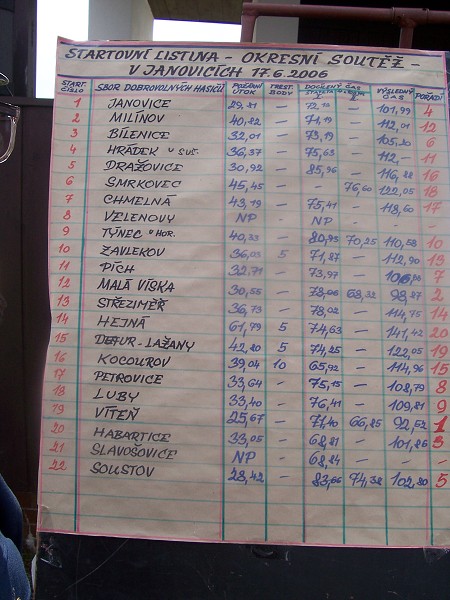 STARTOVNÍ LISTINA - OKRESNÍ SOUTĚŽ -
V JANOVICÍCH 17.6.2006
START. ČÍSLO SBOR DOBROVOLNÝCH HASIČŮ POŽÁRNÍ ÚTOK TREST. BODY DOCÍLENÝ ČAS ŠTAFETA VÝSLEDNÝ ČAS POŘADÍ
1 JANOVICE 29,81 — 72,18 — 101,99 4
2 MILÍNOV 40,82 — 71,19 — 112,01 12
3 BÍLENICE 32,01 — 73,19 — 105,20 6
4 HRÁDEK U SUŠ. 36,37 — 75,63 — 112,- 11
5 DRAŽOVICE 30,92 — 85,96 — 116,88 16
6 SMRKOVEC 45,45 - - 76,60 122,05 18
7 CHMELNÁ 43,19 — 75,41 — 118,60 17
8 VELENOVY NP - NP - -
9 TÝNEC U HOR. 40,33 — 80,95 70,25 110,58 10
10 ZAVLEKOV 36,03 5 71,87 — 112,90 13
11 PÍCH 32,71 — 73,97 — 7
12 MALÁ VÍSKA 30,55 — 68,32 98,87 2
13 STŘEZIMĚŘ 36,73 — 78,02 — 114,75 14
14 HEJNÁ 61,79 5 74,63 — 141,42 20
15 - LAŽANY 42,80 5 74,25 — 122,05 19
16 KOCOUROV 39,04 10 65,92 — 114,96 15
17 PETROVICE 33,64 — 75,15 — 108,79 8
18 LUBY 33,40 — 76,41 — 109,81 9
19 VÍTEŇ 25,67 — 71,40 66,85 92,52 1
20 HABARTICE 33,05 — 68,81 — 101,86 3
21 SLAVOŠOVICE NP — 68,84 — — —
22 SOUSTOV 28,42 — 83,66 74,38 102,80 5